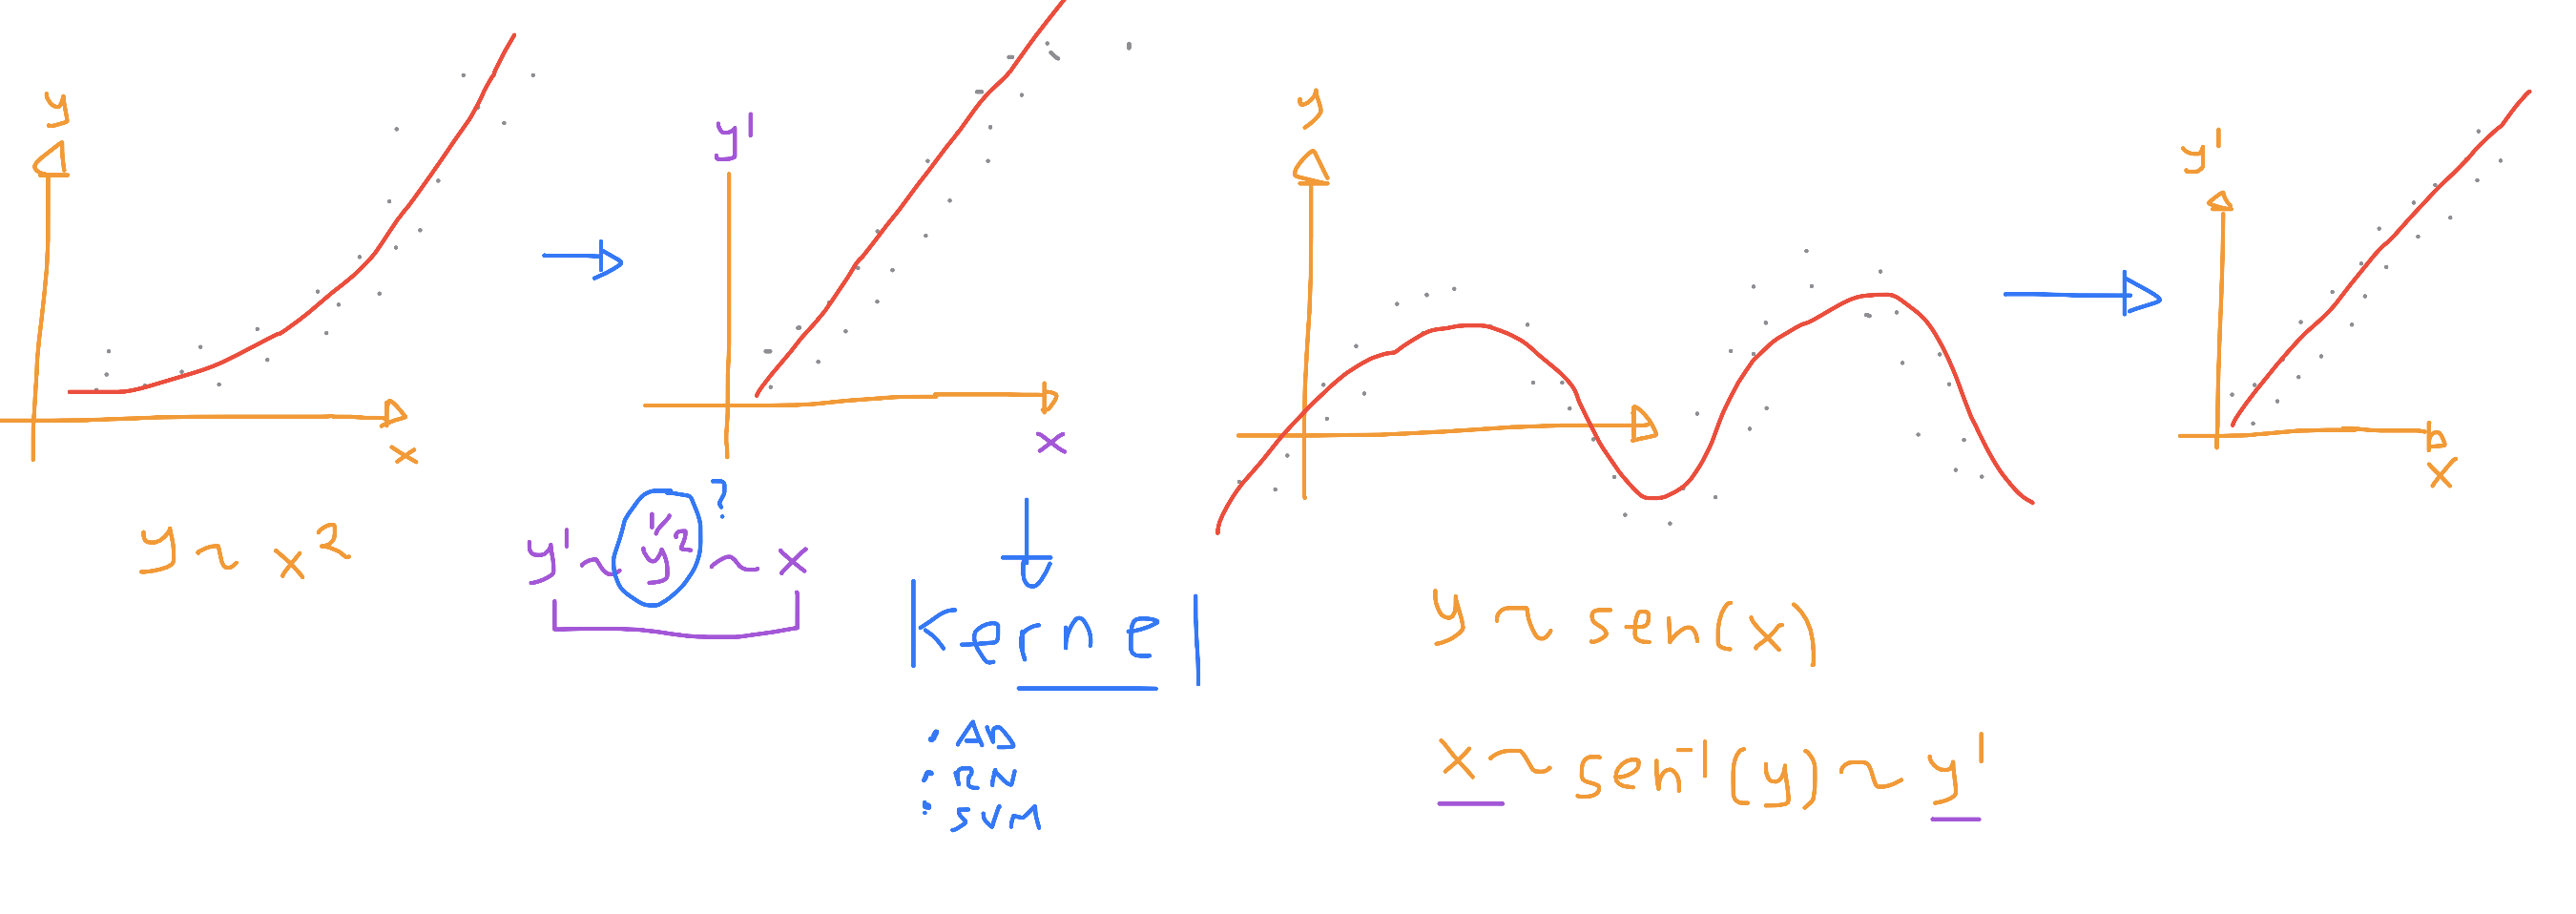 y
x
y ~ x²
y'
x
y' ~ y^½ ~ x
?
Kernel
• AD
• RN
• SVM
y
y ~ sen(x)
x ~ sen⁻¹(y) ~ y'
y'
x